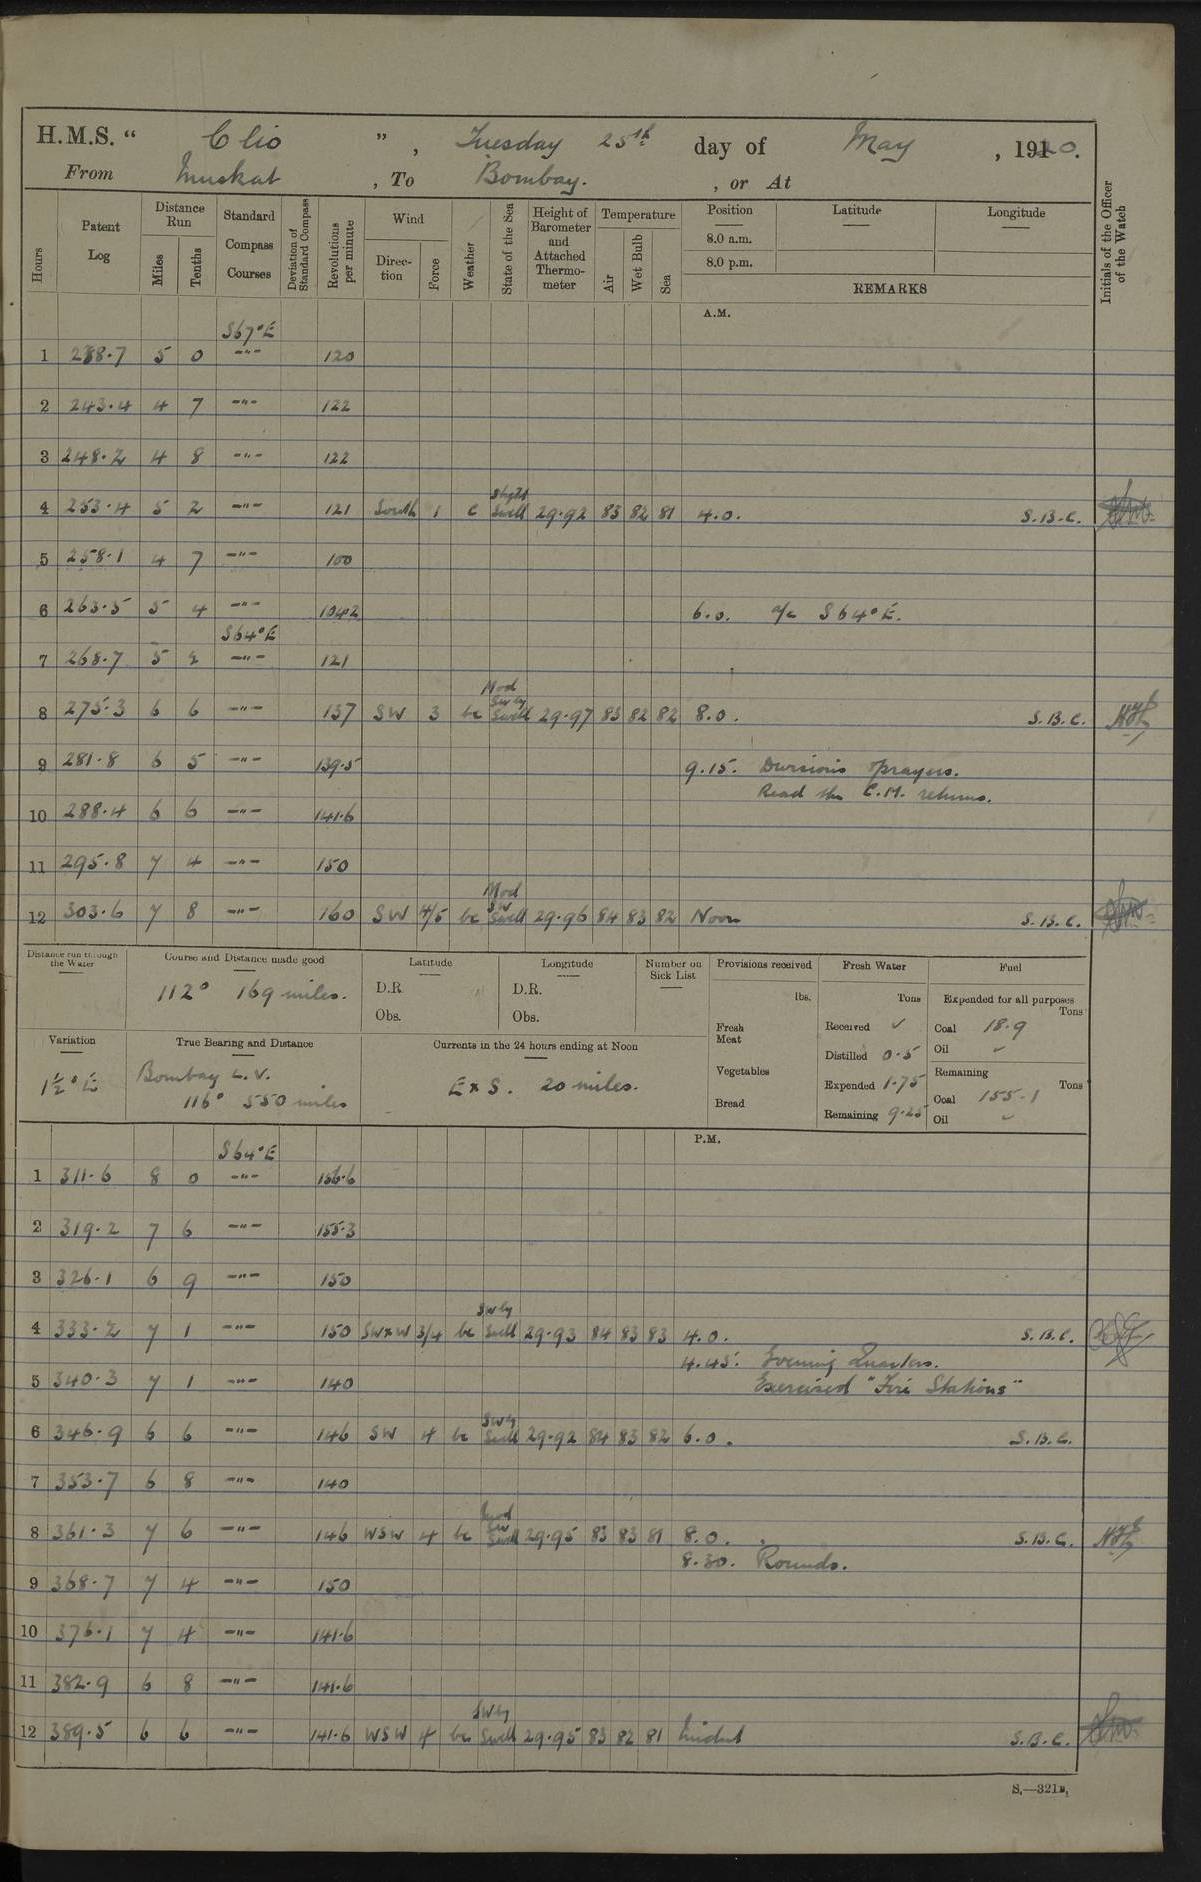 H.M.S. “ Clio ” , Tuesday 25th day of May , 1920.
From Muskat , To Bombay. , or At
Hours
Patent Log
Distance Run
Miles
Tenths
Standard Compass Courses
Deviation of Standard Compass
Revolutions per minute
Wind
Direction
Force
Weather
State of the Sea
Height of Barometer and Attached Thermometer
Temperature
Air
Wet Bulb
Sea
Position
8.0 a.m.
8.0 p.m.
Latitude
Longitude
REMARKS
Initials of the Officer of the Watch
A.M.
S67°E
1 238.7 5 0 -"- 120
2 243.4 4 7 -"- 122
3 248.2 4 8 -"- 122
4 253.4 5 2 -"- 121 South 1 c Slight Swell 29.92 83 82 81 4.0. S.B.C.
5 258.1 4 7 -"- 100
6 263.5 5 4 -"- 104.2 6.0. a/c S64°E.
S64°E
7 268.7 5 2 -"- 121
8 275.3 6 6 -"- 137 SW 3 bc Mod SWly Swell 29.97 83 82 82 8.0. S.B.C.
9 281.8 6 5 -"- 139.5 9.15. Divisions & prayers.
Read the C.M. returns.
10 288.4 6 6 -"- 141.6
11 295.8 7 4 -"- 150
12 303.6 7 8 -"- 160 SW 4/5 bc Mod SW Swell 29.96 84 83 82 Noon S.B.C.
Distance run through the Water
Course and Distance made good
112° 169 miles.
Latitude
D.R.
Obs.
Longitude
D.R.
Obs.
Number on Sick List
Provisions received
lbs.
Fresh Meat
Vegetables
Bread
Fresh Water
Tons
Received ✓
Distilled 0.5
Expended 1.75
Remaining 9.25
Fuel
Expended for all purposes
Tons
Coal 18.9
Oil ✓
Remaining
Tons
Coal 155.1
Oil ✓
Variation
1½°E
True Bearing and Distance
Bombay L.V.
116° 550 miles
Currents in the 24 hours ending at Noon
ExS. 20 miles.
P.M.
S64°E
1 311.6 8 0 -"- 156.6
2 319.2 7 6 -"- 155.3
3 326.1 6 9 -"- 150
4 333.2 7 1 -"- 150 SWxW 3/4 bc SWly Swell 29.93 84 83 83 4.0. S.B.C.
4.45. Evening Quarters.
5 340.3 7 1 -"- 140 Exercised "Fire Stations"
6 346.9 6 6 -"- 146 SW 4 bc SWly Swell 29.92 84 83 82 6.0. S.B.C.
7 353.7 6 8 -"- 140
8 361.3 7 6 -"- 146 WSW 4 bc Mod SW Swell 29.95 83 83 81 8.0. S.B.C.
8.30. Rounds.
9 368.7 7 4 -"- 150
10 376.1 7 4 -"- 141.6
11 382.9 6 8 -"- 141.6
12 389.5 6 6 -"- 141.6 WSW 4 bc SWly Swell 29.95 83 82 81 Midnt S.B.C.
S.—321B.